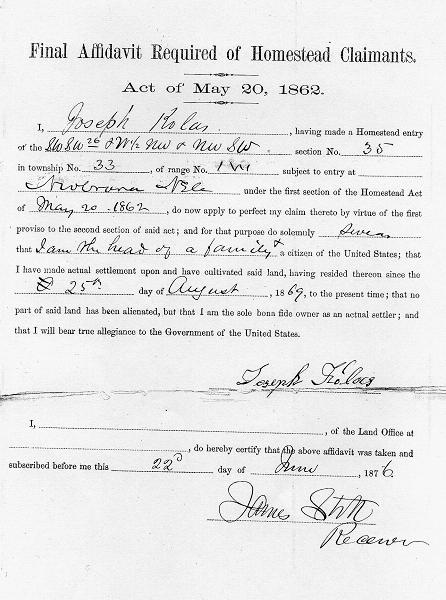 Final Affidavit Required of Homestead Claimants.
Act of May 20, 1862.
I, Joseph Kolar, having made a Homestead entry
of the SW SW 26 & W½ NW & NW SW section No. 35
in township No. 33 of range No. 1W subject to entry at
Niobrara Neb under the first section of the Homestead Act
of May 20. 1862, do now apply to perfect my claim thereto by virtue of the first
proviso to the second section of said act; and for that purpose do solemnly swear
that I am the head of a family & a citizen of the United States; that
I have made actual settlement upon and have cultivated said land, having resided thereon since the
25th day of August, 1869, to the present time; that no
part of said land has been alienated, but that I am the sole bona fide owner as an actual settler; and
that I will bear true allegiance to the Government of the United States.
Joseph Kolar
I, , of the Land Office at
, do hereby certify that the above affidavit was taken and
subscribed before me this 22d day of June, 1876.
James
Receiver